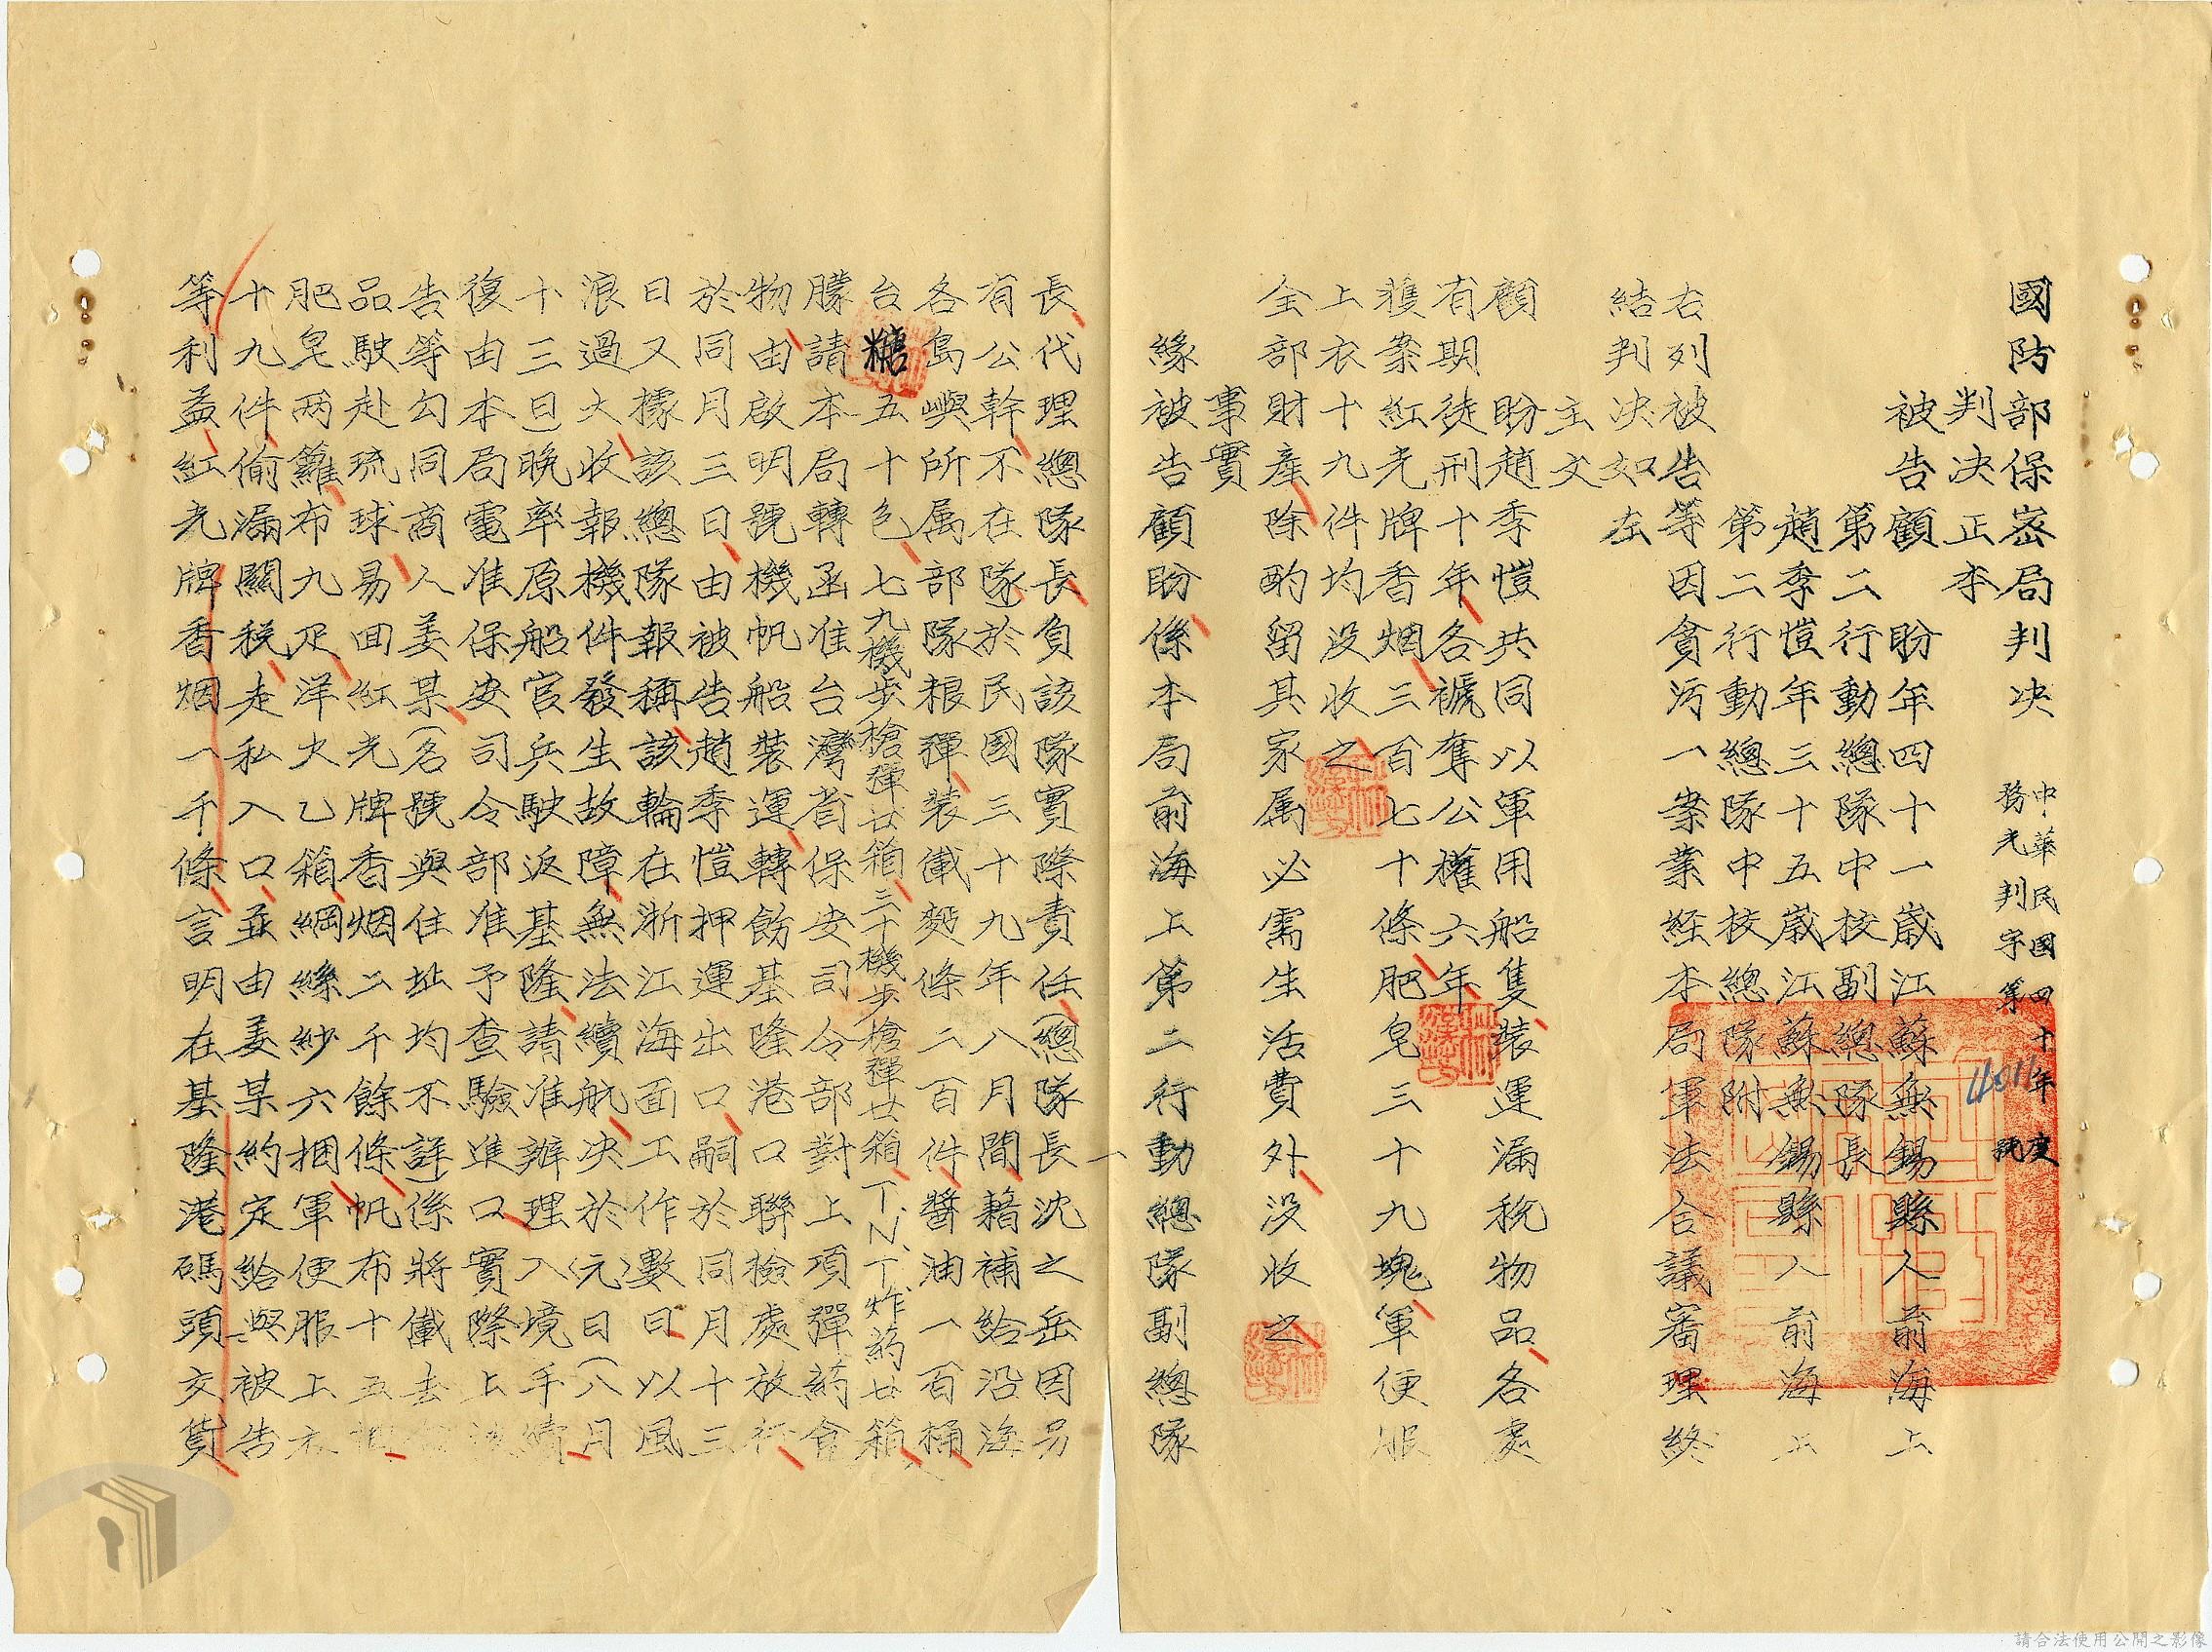 國防部保密局判決
中華民國四十年度
務光判字第4011號
判決正本
被告顧 盼年四十一歲江蘇無錫縣人前海上
第二行動總隊中校副總隊長
趙季愷年三十五歲江蘇無錫縣人前海上
第二行動總隊中校總隊附
右列被告等因貪污一案業經本局軍法合議審理終
結判決如左
主文
顧 盼趙季愷共同以軍用船隻裝運漏稅物品各處
有期徒刑十年各褫奪公權六年
獲案紅光牌香烟三百七十條肥皂三十九塊軍便服
上衣十九件均沒收之
全部財產除酌留其家屬必需生活費外沒收之
事實
緣被告顧盼係本局前海上第二行動總隊副總隊
長代理總隊長負該隊實際責任(總隊長沈之岳因另
有公幹不在隊)於民國三十九年八月間藉補給沿海
各島嶼所屬部隊粮彈裝儎麪條二百件醬油一百桶
台糖五十包七九機步槍彈廿箱三十機步槍彈廿箱丁、N、丁炸葯廿箱
朦請本局轉函准台灣省保安司令部對上項彈葯會
物由啟明號機帆船裝運轉飭基隆港口聯檢處放行
於同月三日由被告趙季愷押運出口嗣於同月十三
日又據該總隊報稱該輪在浙江海面工作數日以風
浪過大收報機件發生故障無法續航決於(元)日(八月
十三日)晚率原船官兵駛返基隆請准辦理入境手續
復由本局電准保安司令部准予查驗進口實際上被
告等勾同商人姜某(名號與住址均不詳)係將儎去
品駛赴琉球易回紅光牌香烟二千餘條帆布十五捆
肥皂两籮布九疋洋火乙箱綢絲紗六捆軍便服上衣
十九件偷漏關稅走私入口並由姜某約定給與被告
等利益紅光牌香烟一千條言明在基隆港碼頭交貨
一
請合法使用公開之影像